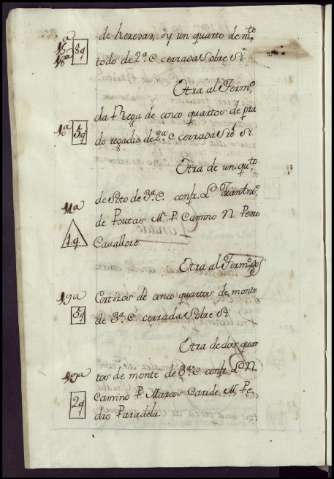 de hexexas, y un quarto de mte
8q todo de 2ª C. cerrada sobre si
Otra al Term.
16ª da Rega de cinco quartos de pra
5q do regadio de 2ª C. cerrada sre si
Otra de un qto
de Soto de 3ª C. conf. L.
1q de Poutas M. P. Camino N. Pedro
Cavalleio
Otra al Term.
de cinco quartos de monte
5q de 3ª C. cerrada sobre si
Otra de dos quar
tos de monte de 3ª C. conf. L. N.
2q Camino P. Marcos Caride M. Pe
dro Paradela